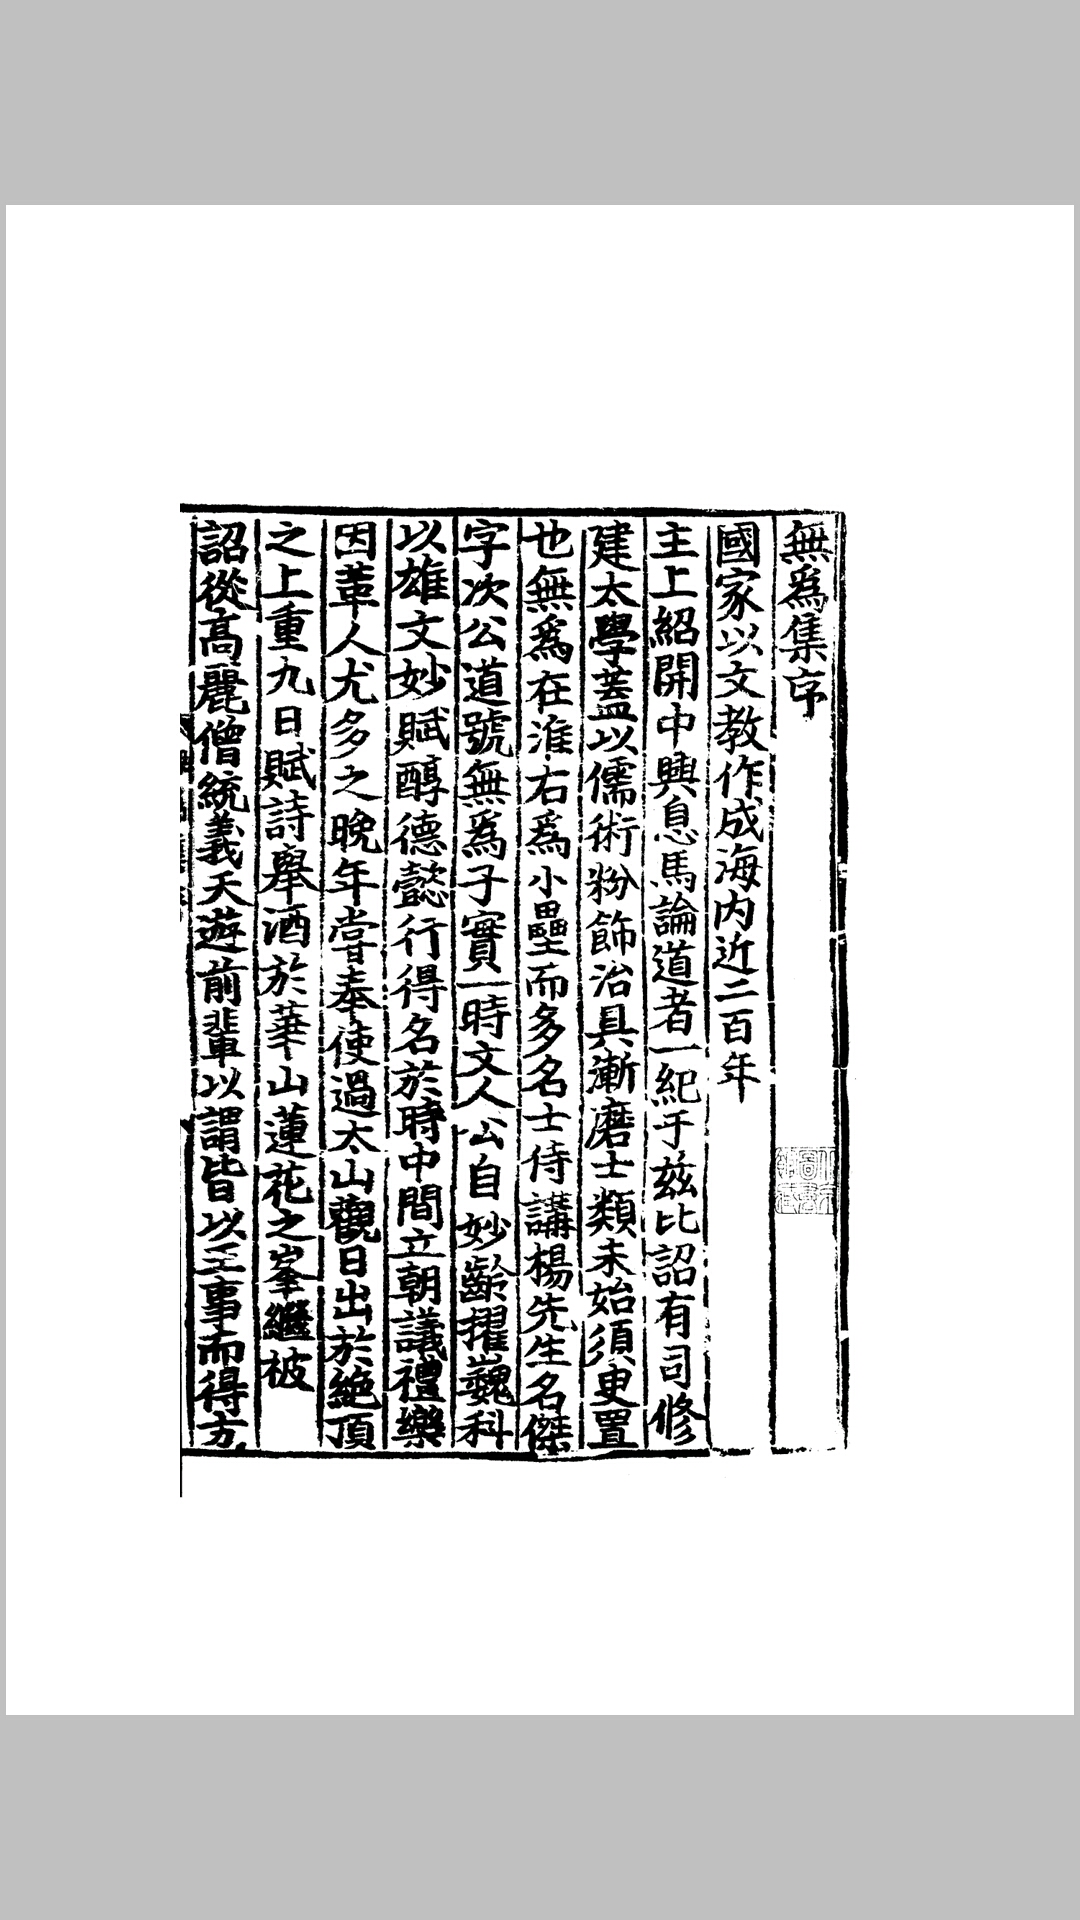 無爲集序
國家以文教作成海内近二百年
主上紹開中興息馬論道者一紀于兹比詔有司修
建太學蓋以儒術粉飾治具漸磨士類未始須臾置
也無爲在淮右爲小壘而多名士侍講楊先生名傑
字次公道號無爲子實一時文人公自妙齡擢巍科
以雄文妙賦醇德懿行得名於時中間立朝議禮樂
因革人尤多之晚年嘗奉使過太山觀日出於絶頂
之上重九日賦詩舉酒於華山蓮花之峯繼被
詔從高麗僧統義天遊前軰以謂皆以王事而得方